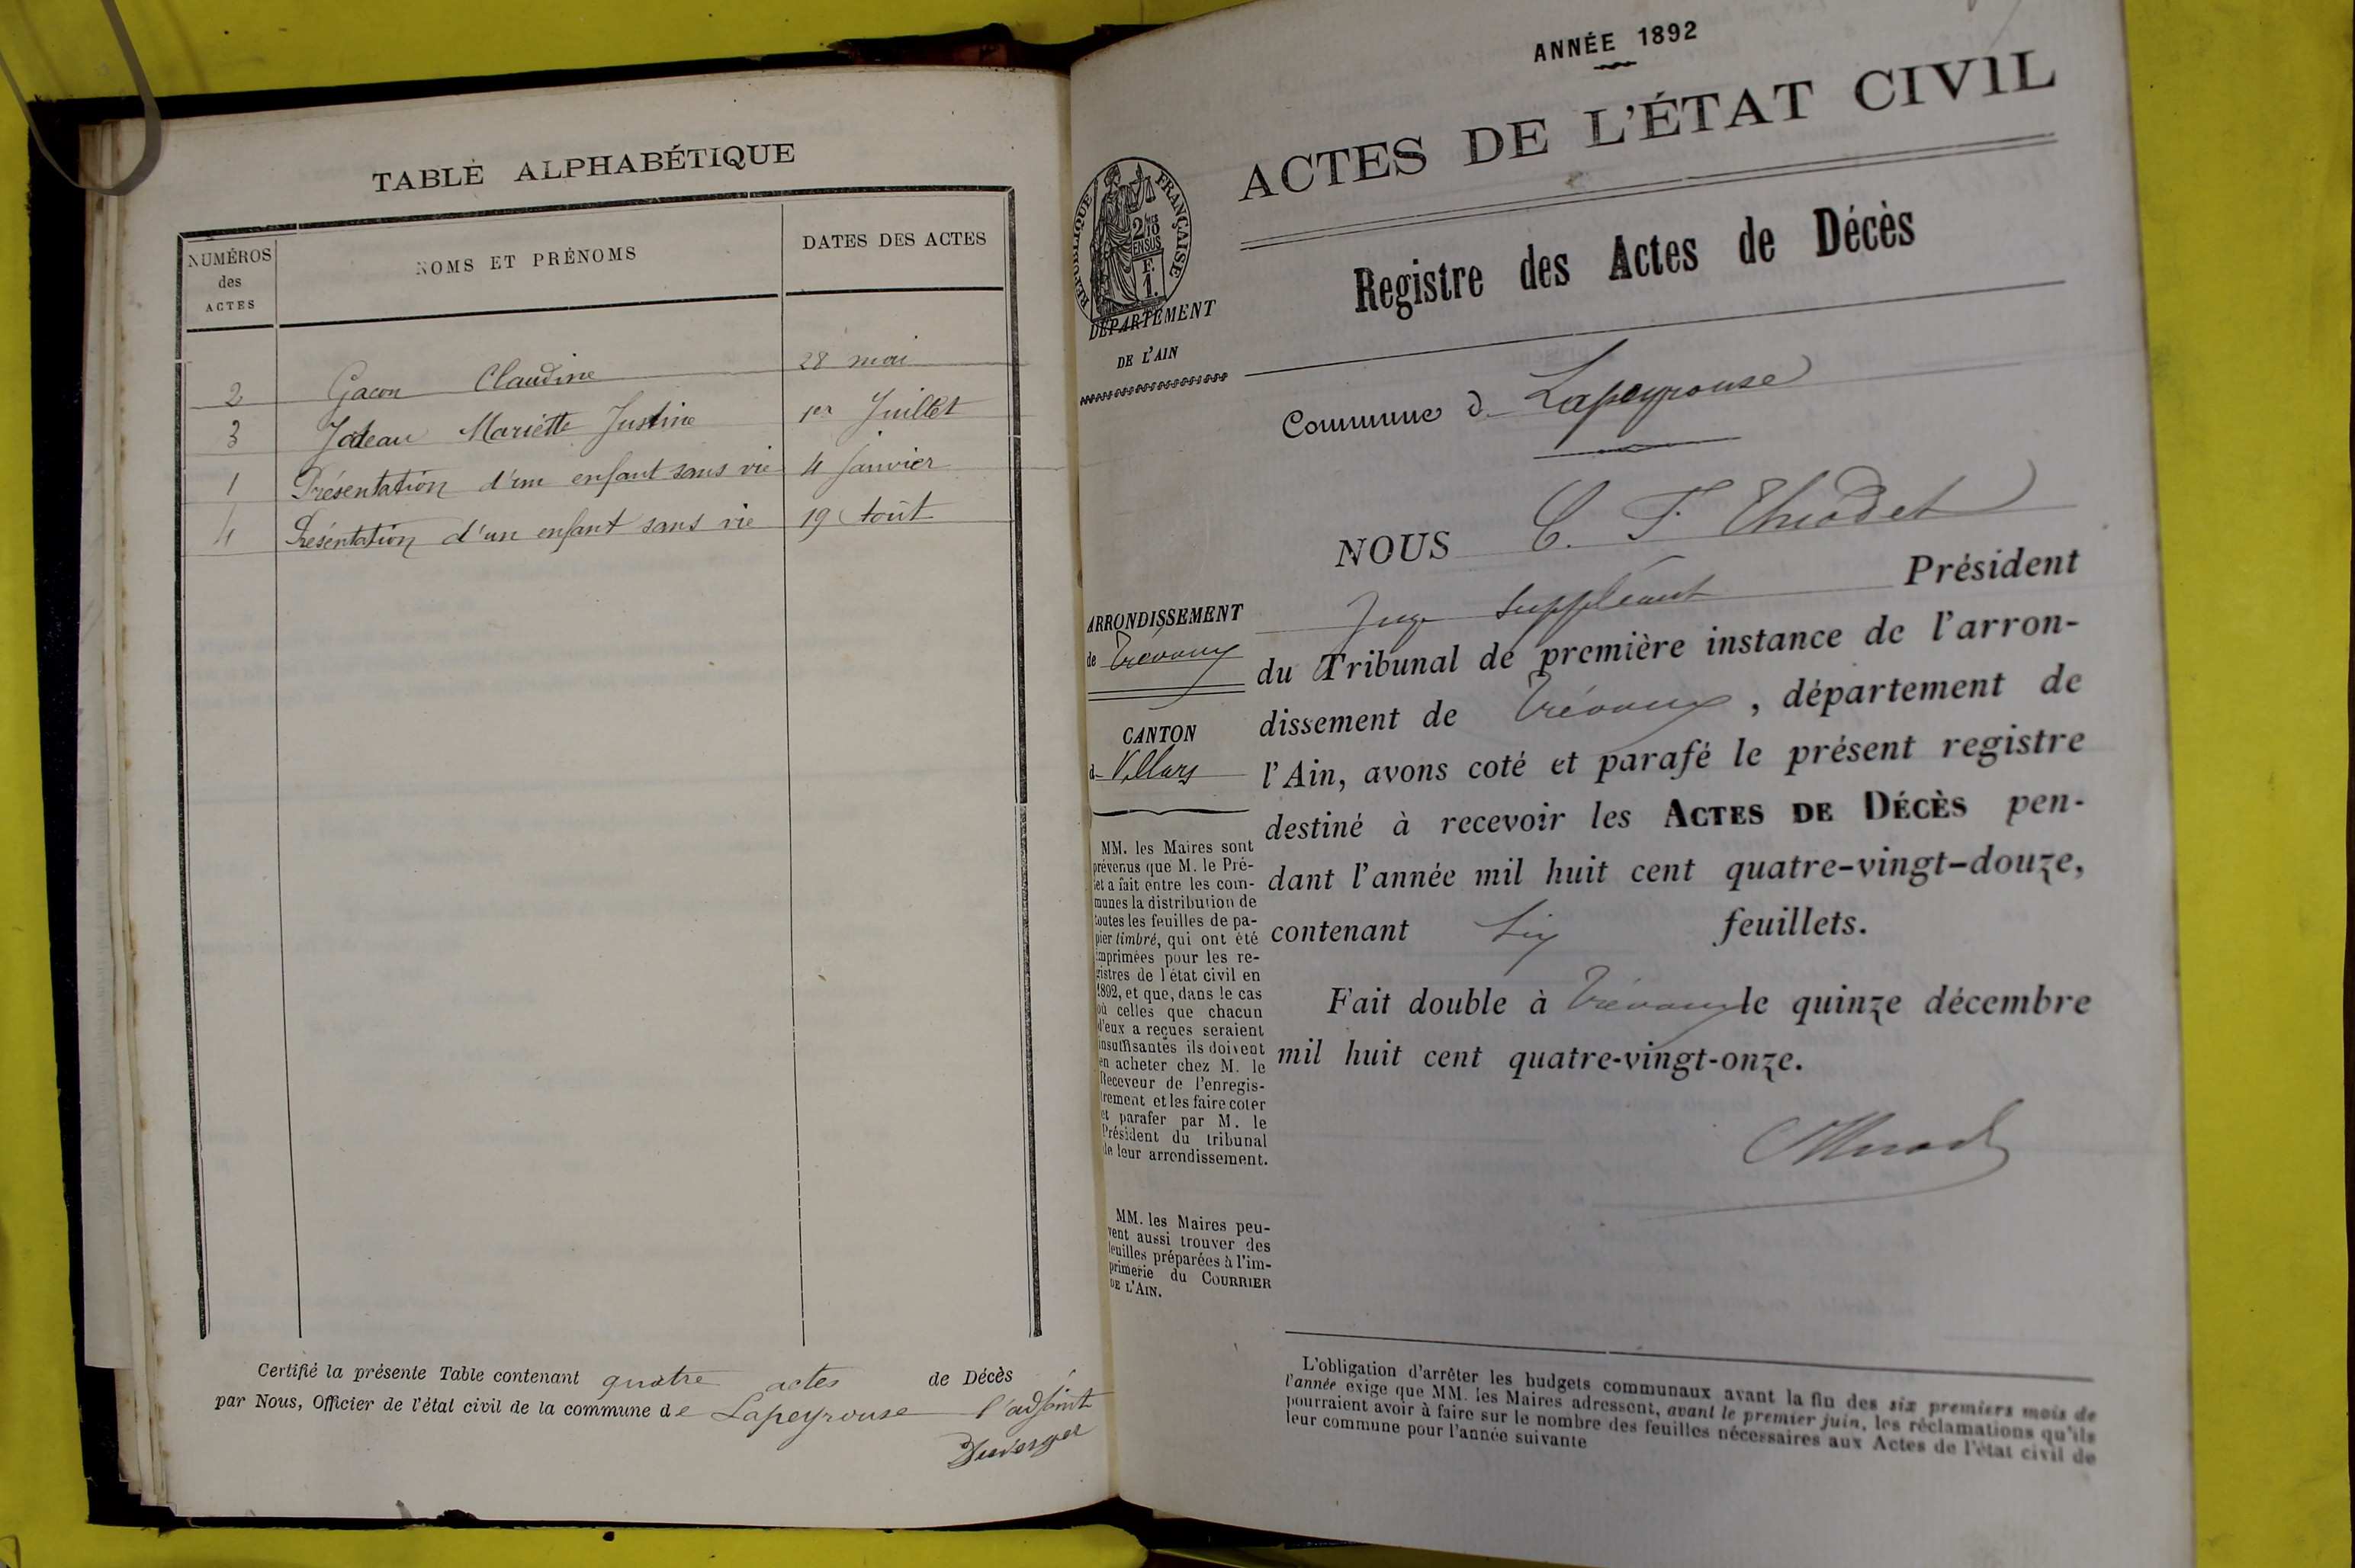 TABLE ALPHABÉTIQUE
NUMÉROS des ACTES
NOMS ET PRÉNOMS
DATES DES ACTES
2 Gacon Claudine 28 mai
3 Joteau Mariette Justine 1er Juillet
1 Présentation d'un enfant sans vie 4 Janvier
4 Présentation d'un enfant sans vie 19 Août
Certifié la présente Table contenant quatre actes de Décès
par Nous, Officier de l'état civil de la commune de Lapeyrouse l'adjoint
Duverger
ANNÉE 1892
ACTES DE L'ÉTAT CIVIL
RÉPUBLIQUE FRANÇAISE
2/10 EN SUS
F.
1.
DÉPARTEMENT
DE L'AIN
Registre des Actes de Décès
Commune d Lapeyrouse
NOUS C. F. Thiodet
Juge suppléant Président
ARRONDISSEMENT
de Trévoux
CANTON
d Villars
du Tribunal de première instance de l'arron-
dissement de Trévoux, département de
l'Ain, avons coté et parafé le présent registre
destiné à recevoir les ACTES DE DÉCÈS pen-
dant l'année mil huit cent quatre-vingt-douze,
contenant Six feuillets.
Fait double à Trévoux le quinze décembre
mil huit cent quatre-vingt-onze.
MM. les Maires sont
prévenus que M. le Pré-
fet a fait entre les com-
munes la distribution de
toutes les feuilles de pa-
pier timbré, qui ont été
imprimées pour les re-
gistres de l'état civil en
1892, et que, dans le cas
où celles que chacun
d'eux a reçues seraient
insuffisantes ils doivent
en acheter chez M. le
Receveur de l'enregis-
trement et les faire coter
et parafer par M. le
Président du tribunal
de leur arrondissement.
MM. les Maires peu-
vent aussi trouver des
feuilles préparées à l'im-
primerie du COURRIER
DE L'AIN.
L'obligation d'arrêter les budgets communaux avant la fin des six premiers mois de
l'année exige que MM. les Maires adressent, avant le premier juin, les réclamations qu'ils
pourraient avoir à faire sur le nombre des feuilles nécessaires aux Actes de l'état civil de
leur commune pour l'année suivante